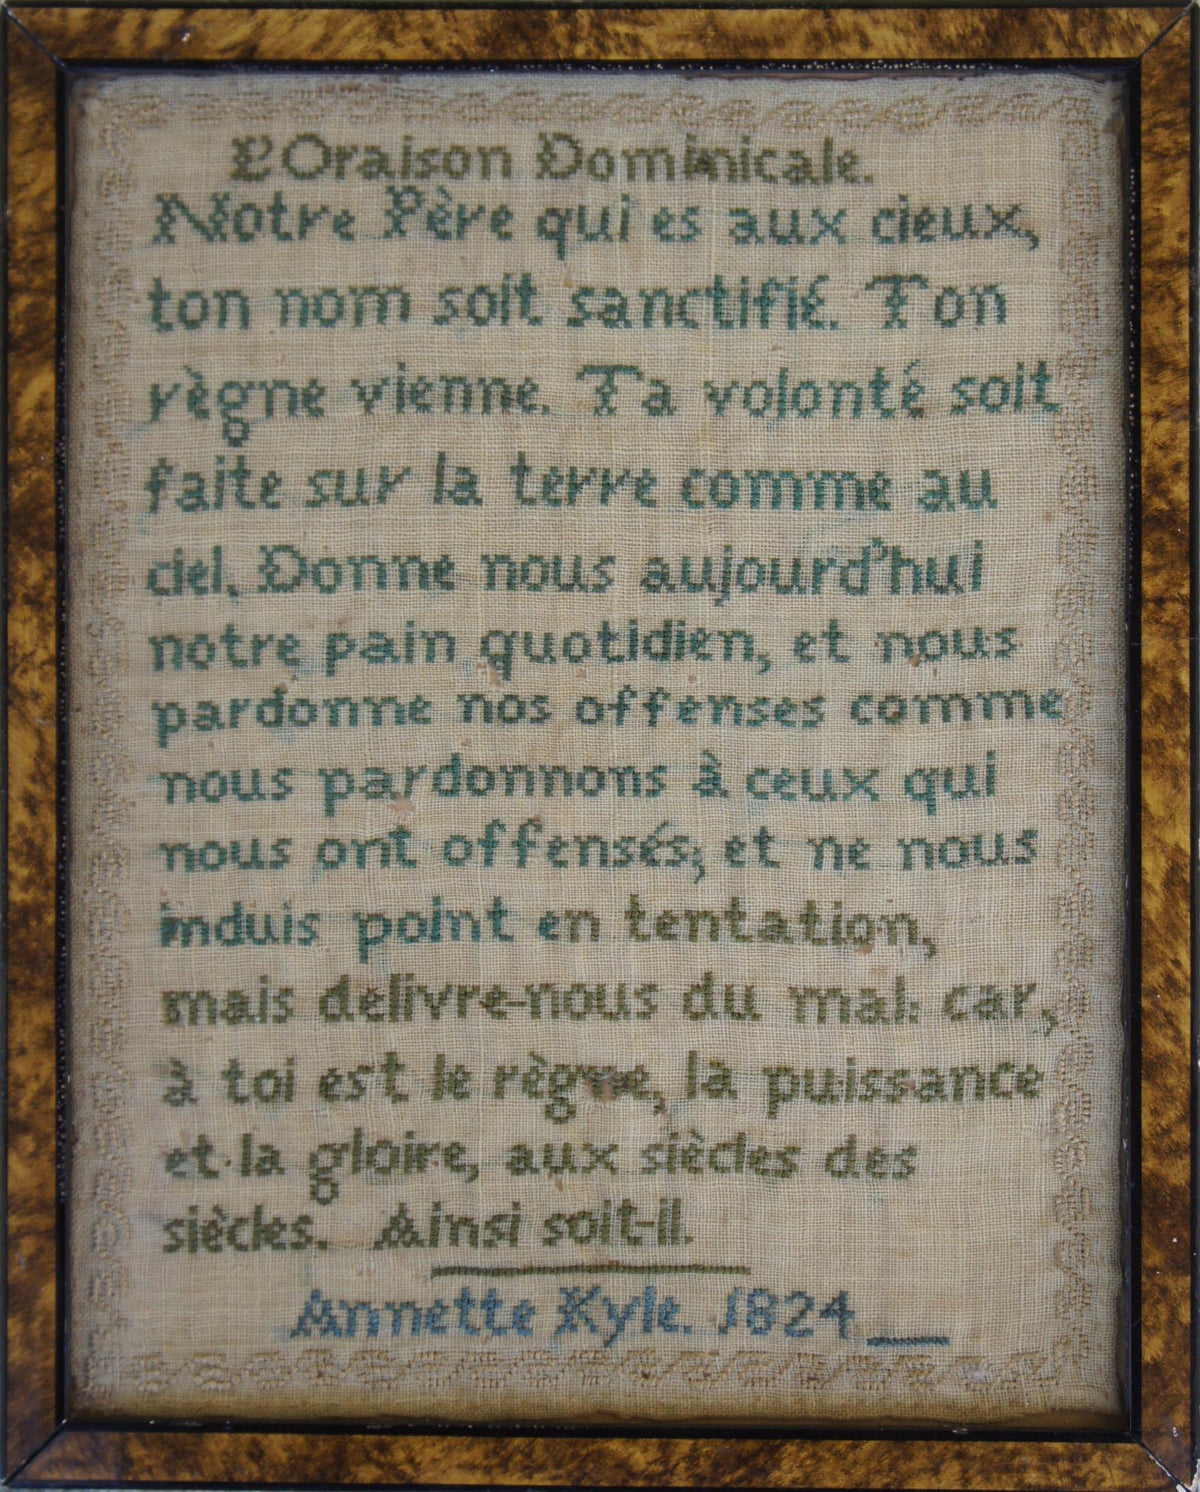 L'Oraison Dominicale.
Notre Père qui es aux cieux,
ton nom soit sanctifié. Ton
règne vienne. Ta volonté soit
faite sur la terre comme au
ciel. Donne nous aujourd'hui
notre pain quotidien, et nous
pardonne nos offenses comme
nous pardonnons à ceux qui
nous ont offensés; et ne nous
induis point en tentation,
mais delivre-nous du mal: car,
à toi est le règne, la puissance
et la gloire, aux siècles des
siècles. Ainsi soit-il.
Annette Kyle. 1824